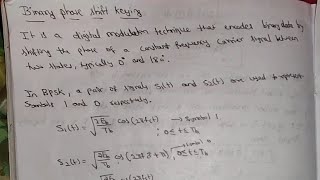 Binary phase shift keying
It is a digital modulation technique that encodes binary data by
shifting the phase of a constant frequency carrier signal between
two states, typically 0° and 180°.
In BPSK, a pair of signals S₁(t) and S₂(t) are used to represent
symbols 1 and 0, respectively.
S₁(t) = √(2Eb/Tb) cos(2πfct) → symbol 1. 0≤t≤Tb
S₂(t) = √(2Eb/Tb) cos(2πf → symbol 0 0≤t≤Tb